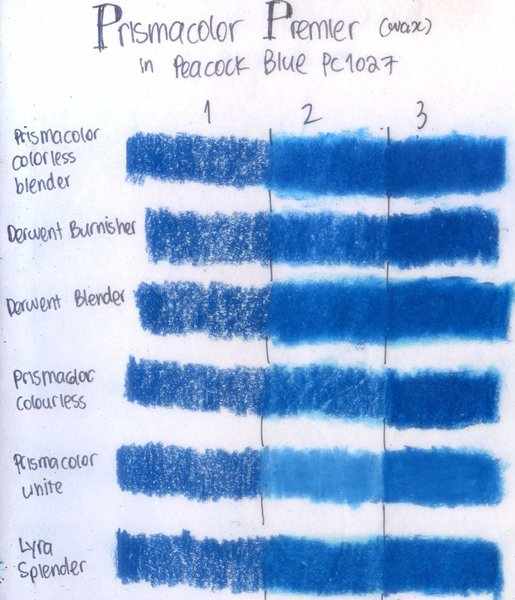 Prismacolor Premier (wax)
in Peacock Blue PC1027
1 2 3
Prismacolor
colorless
blender
Derwent Burnisher
Derwent Blender
Prismacolor
Colourless
Prismacolor
white
Lyra
Splender